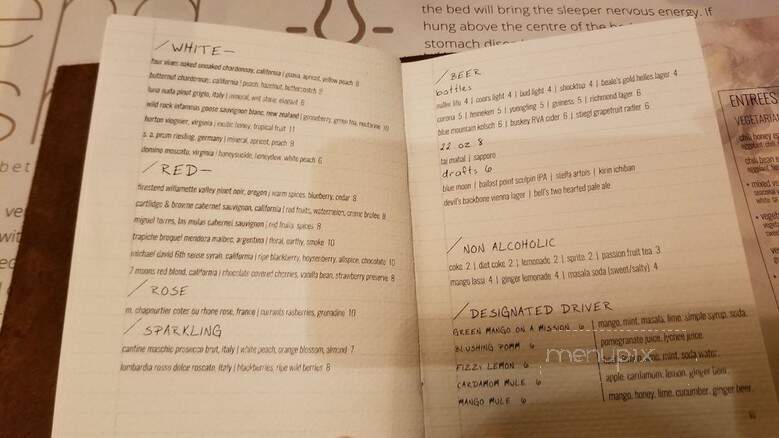 the bed will bring the sleeper nervous energy. If
hung above the centre of the
stomach
/WHITE—
four vines naked unoaked chardonnay, california | guava, apricot, yellow peach 8
butternut chardonnay, california | peach, hazelnut, butterscotch
luna nuda pinot grigio, italy | mineral, wet stone, almond 8
wild rock infamous goose sauvignon blanc, new zealand | gooseberry, green tea, nectarine 10
horton viognier, virginia | exotic honey, tropical fruit 11
s. a. prum riesling, germany | mineral, apricot, peach 9
domino moscato, virginia | honeysuckle, honeydew, white peach 6
/RED—
firesteed willamette valley pinot noir, oregon | warm spices, blueberry, cedar 8
cartlidge & browne cabernet sauvignon, california | red fruits, watermelon, creme brulee 8
miguel torres, las mulas cabernet sauvignon | red fruits, spices 8
trapiche broquel mendoza malbec, argentina | floral, earthy, smoke 10
michael david 6th sense syrah, california | ripe blackberry, boysenberry, allspice, chocolate 10
7 moons red blend, california | chocolate covered cherries, vanilla bean, strawberry preserve 8
/ROSE
m. chapoutier coter du rhone rose, france | currants rasberries, grenadine 10
/SPARKLING
cantine maschio prosecco brut, italy | white peach, orange blossom, almond 7
lombardia rosso dolce roscato, italy | blackberries, ripe wild berries 8
/BEER
bottles
miller lite 4 | coors light 4 | bud light 4 | shocktop 4 | beale's gold helles lager 4
corona 5 | heineken 5 | yuengling 5 | guiness 5 | richmond lager 6
blue mountain kolsch 6 | buskey RVA cider 6 | stiegl grapefruit radler 6
22 oz 8
taj mahal | sapporo
drafts 6
blue moon | ballast point sculpin IPA | stella artois | kirin ichiban
devil's backbone vienna lager | bell's two hearted pale ale
/NON ALCOHOLIC
coke 2 | diet coke 2 | lemonade 2 | sprite 2 | passion fruit tea 3
mango lassi 4 | ginger lemonade 4 | masala soda (sweet/salty) 4
/DESIGNATED DRIVER
GREEN MANGO ON A MISSION 6 | mango, mint, masala, lime, simple syrup, soda
BLUSHING POMM 6 | pomegranate juice, lychee juice
FIZZY LEMON 6 | mint, soda water
CARDAMOM MULE 6 | apple, cardamom, lemon, ginger beer
MANGO MULE 6 | mango, honey, lime, cucumber, ginger beer
menupix
ENTREES
VEGETARIA
chili honey
chili bean
• mixed v
• vegeta